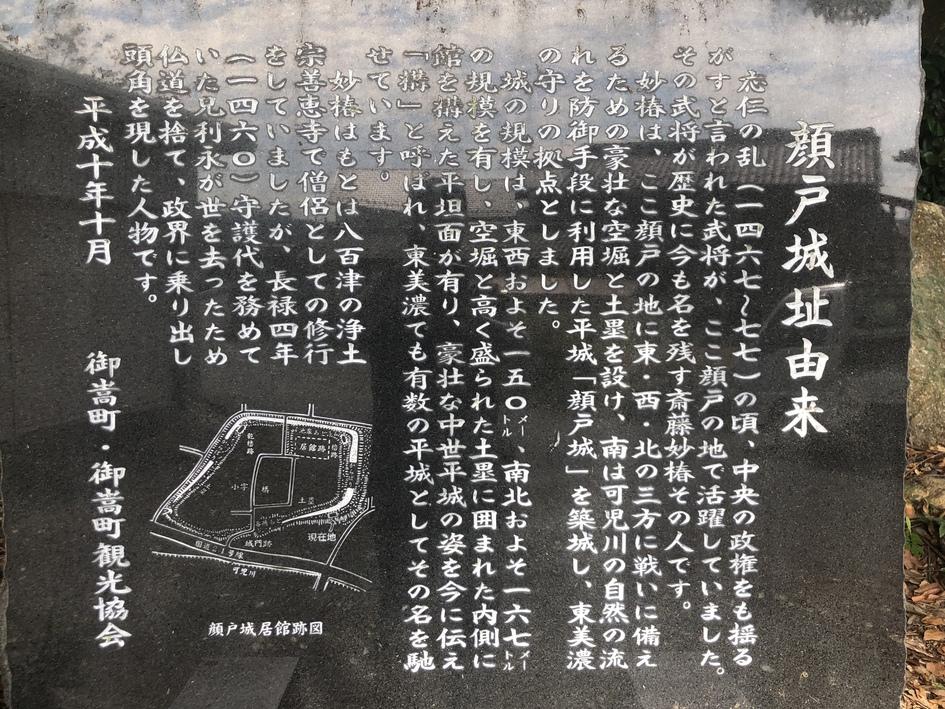 顔戸城址由来
応仁の乱(一四六七〜七七)の頃、中央の政権をも揺る
がすと言われた武将が、ここ顔戸の地で活躍していました。
その武将が歴史に今も名を残す斎藤妙椿その人です。
妙椿は、ここ顔戸の地に東・西・北の三方に戦いに備え
るための豪壮な空堀と土塁を設け、南は可児川の自然の流
れを防御手段に利用した平城「顔戸城」を築城し、東美濃
の守りの拠点としました。
城の規模は、東西およそ一五〇メートル、南北およそ一六七メートル
の規模を有し、空堀と高く盛られた土塁に囲まれた内側に
館を構えた平坦面が有り、豪壮な中世平城の姿を今に伝え
「構」と呼ばれ、東美濃でも有数の平城としてその名を馳
せています。
妙椿はもとは八百津の浄土
宗善恵寺で僧侶としての修行
をしていましたが、長禄四年
(一四六〇)守護代を務めて
いた兄利永が世を去ったため
仏道を捨て、政界に乗り出し
頭角を現した人物です。
平成十年十月
御嵩町・御嵩町観光協会
居館跡
小字
構
土塁
城門跡
現在地
国道21号線
可児川
顔戸城居館跡図